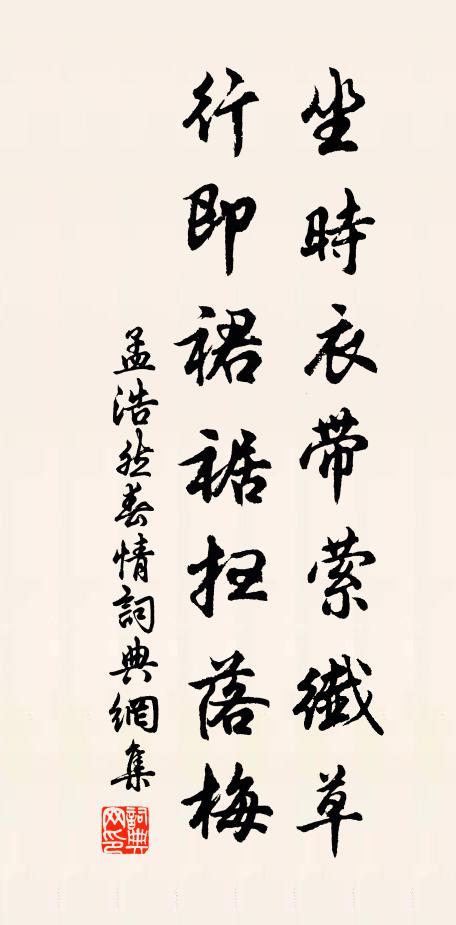 坐時衣带縈纖草
行即裙裾扫落梅
孟浩然春情詞典網集
詞典网印